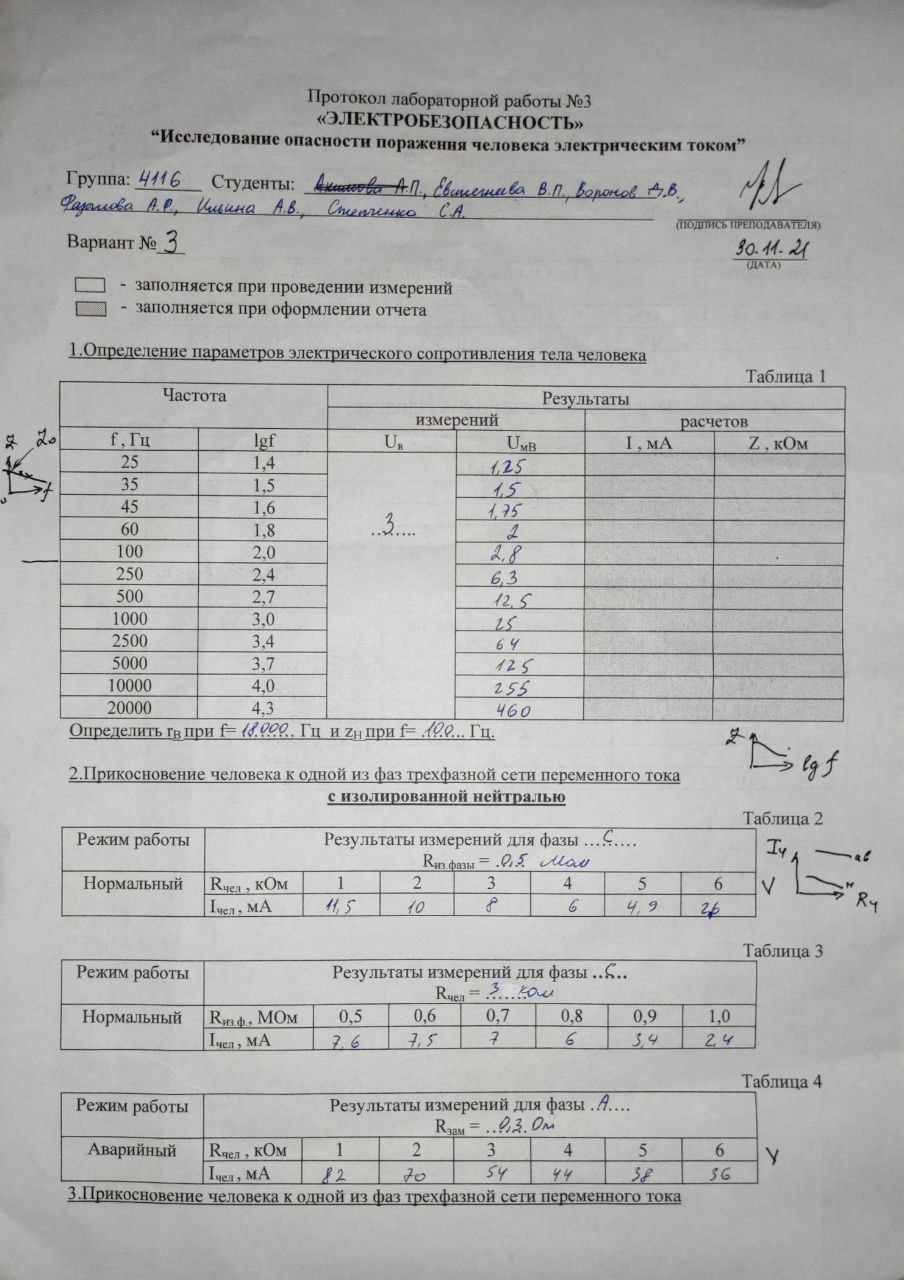 Протокол лабораторной работы №3
«ЭЛЕКТРОБЕЗОПАСНОСТЬ»
“Исследование опасности поражения человека электрическим током”
Группа: 4116 Студенты: А.П., Евстегнеева В.П., Воронов Д.В,
Фазылова А.Р., Ильина А.В., Степченко С.А.
(ПОДПИСЬ ПРЕПОДАВАТЕЛЯ)
Вариант № 3
30.11.21
(ДАТА)
- заполняется при проведении измерений
- заполняется при оформлении отчета
1.Определение параметров электрического сопротивления тела человека
Таблица 1
Частота Результаты
измерений расчетов
f , Гц lgf Uв UмВ I , мА Z , кОм
25 1,4 1,25
35 1,5 1,5
45 1,6 1,75
60 1,8 ..3.... 2
100 2,0 2,8
250 2,4 6,3
500 2,7 12,5
1000 3,0 25
2500 3,4 64
5000 3,7 125
10000 4,0 255
20000 4,3 460
Z Z0
0 f
Определить rВ при f= 18000 Гц и zН при f= 100 Гц.
Z lg f
2.Прикосновение человека к одной из фаз трехфазной сети переменного тока
с изолированной нейтралью
Таблица 2
Режим работы Результаты измерений для фазы ...С....
Rиз.фазы = 0,5 Мом
Нормальный Rчел , кОм 1 2 3 4 5 6
Iчел , мА 11,5 10 8 6 4,9
V
Iч ав
н
Rч
Таблица 3
Режим работы Результаты измерений для фазы ..С..
Rчел = 3 ком
Нормальный Rиз.ф., МОм 0,5 0,6 0,7 0,8 0,9 1,0
Iчел , мА 7,6 7,5 7 6 3,4 2,4
Таблица 4
Режим работы Результаты измерений для фазы .А....
Rзам = 0,3 Ом
Аварийный Rчел , кОм 1 2 3 4 5 6
Iчел , мА 82 70 54 44 38 36
V
3.Прикосновение человека к одной из фаз трехфазной сети переменного тока